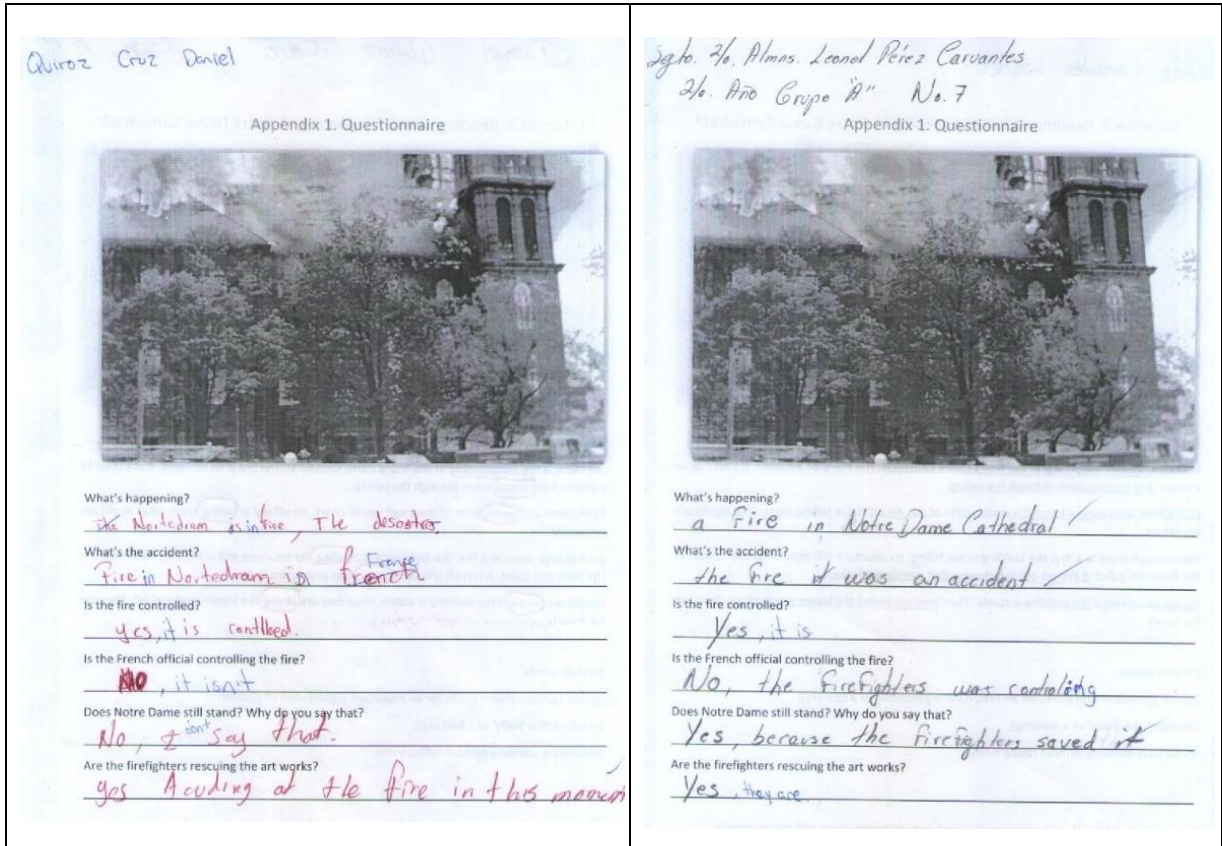 Quiroz Cruz Daniel
Appendix 1. Questionnaire
What's happening?
The Nortedram is in fire, The desaster
What's the accident?
Fire in Nortedram is french France
Is the fire controlled?
yes, it is contlled.
Is the French official controlling the fire?
NO, it isn't
Does Notre Dame still stand? Why do you say that?
No, I don't say that.
Are the firefighters rescuing the art works?
yes Acuding at the fire in this moment
Sgto. 2/o. Almns. Leonel Pérez Carvantes
2/o. Año Grupo "A" No. 7
Appendix 1. Questionnaire
What's happening?
a Fire in Notre Dame Cathedral
What's the accident?
the fire it was an accident
Is the fire controlled?
Yes, it is
Is the French official controlling the fire?
No, the firefighters was controling
Does Notre Dame still stand? Why do you say that?
Yes, because the firefighters saved it
Are the firefighters rescuing the art works?
Yes, they are.